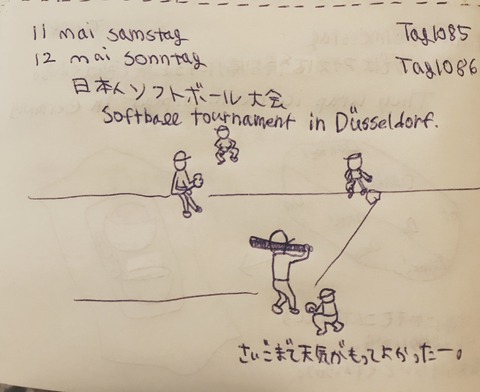 11 mai samstag Tag1085
12 mai sonntag Tag1086
日本人ソフトボール大会
Softball tournament in Düsseldorf.
さいごまで天気がもってよかったー。